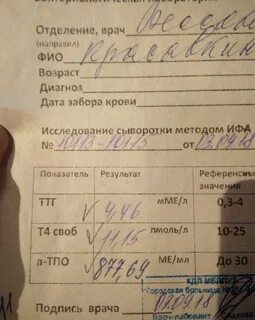 Бактериологическая лаборатория
Отделение, врач
(направил)
ФИО
Возраст
Диагноз
Дата забора крови
Исследование сыворотки методом ИФА
№ 10113-10115 от 03.09.18
Показатель Результат Референсн
значения
ТТГ 4,46 мМЕ/л 0,3-4
Т4 своб 11,15 пмоль/л 10-25
а-ТПО 877,69 МЕ/мл До 30
Городская больница
Подпись врача
Врач-лаборант